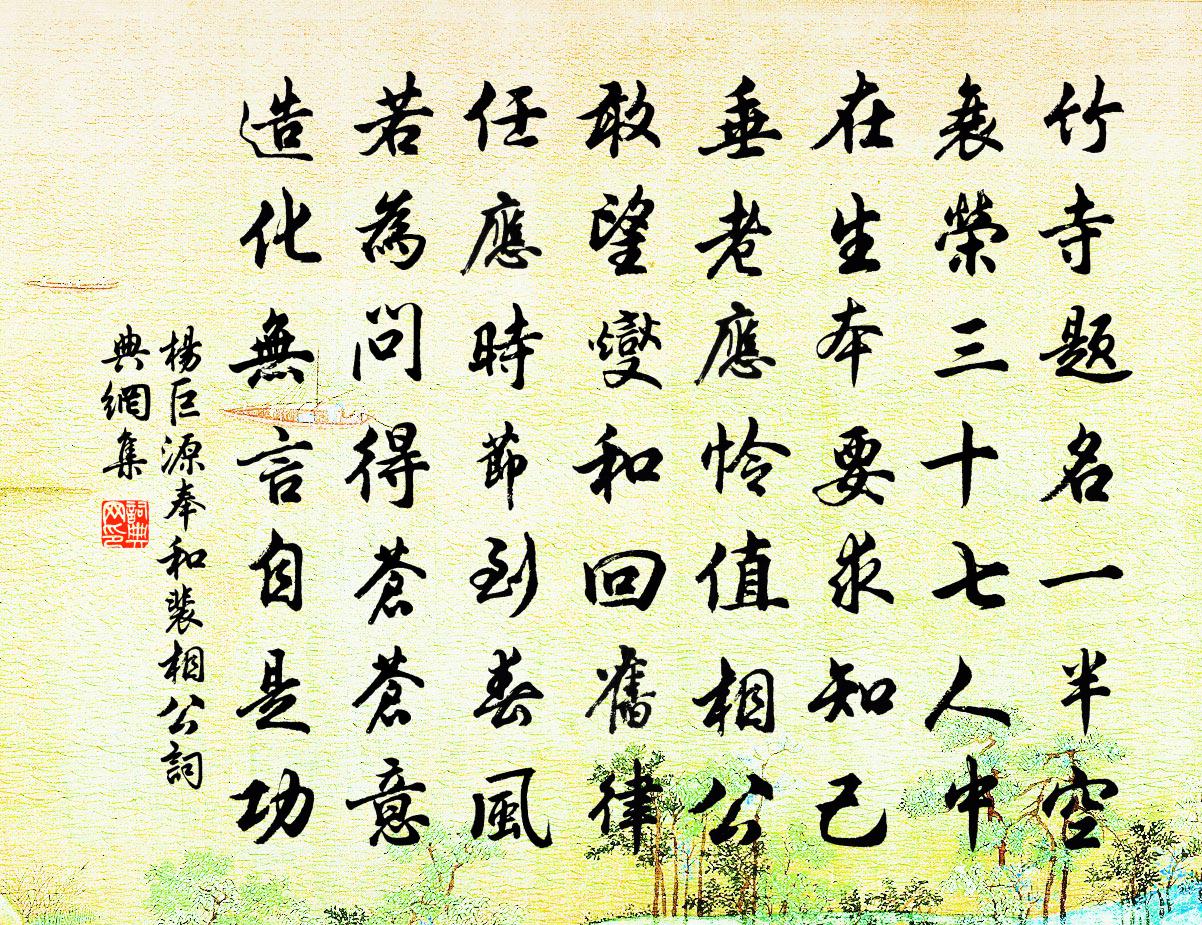 竹寺题名一半空
衰榮三十七人中
在生本要求知己
垂老應怜值相公
敢望燮和回舊律
任應時節到春風
若為問得蒼蒼意
造化無言自是功
楊巨源奉和裴相公詞
典網集
詞典
网印